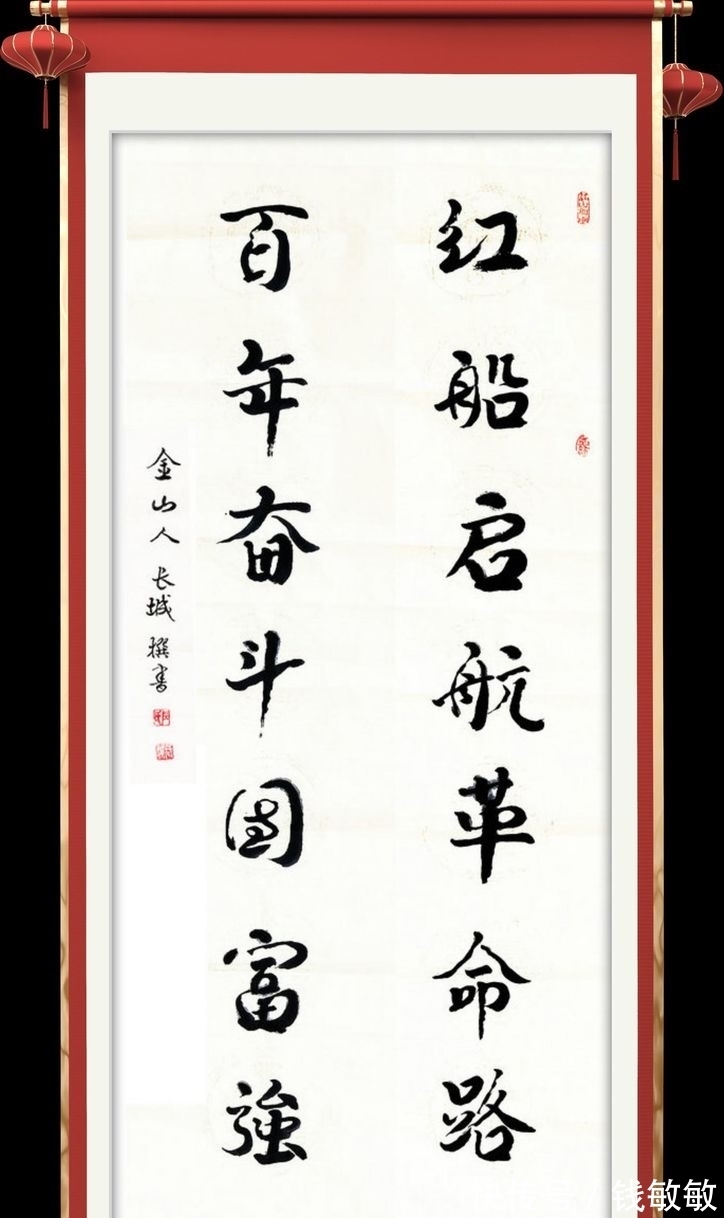 红船启航革命路
百年奋斗国富強
金山人长城撰書
钱敏敏